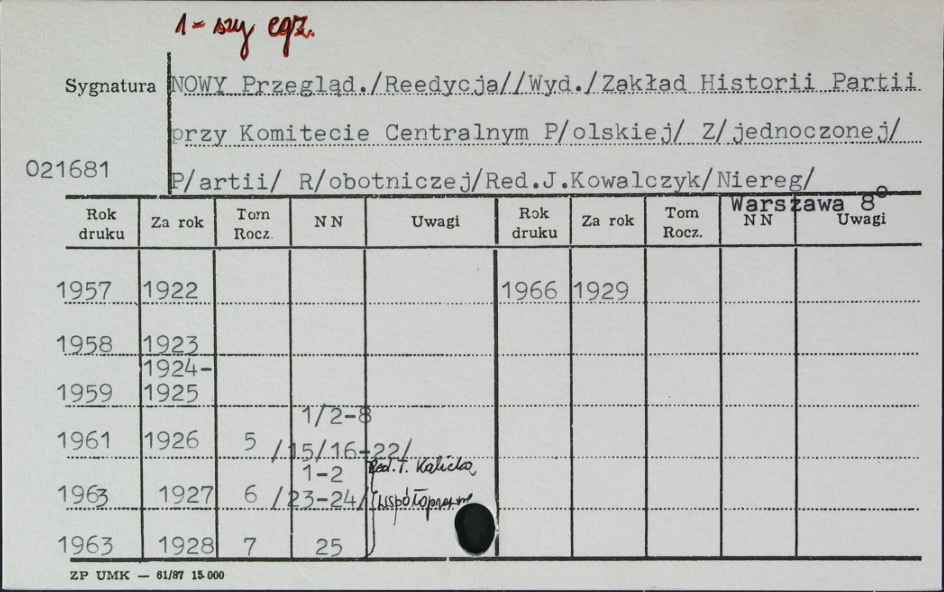 1-szy egz.
Sygnatura NOWY Przegląd./Reedycja//Wyd./Zakład Historii Partii
przy Komitecie Centralnym P/olskiej/ Z/jednoczonej/
021681
P/artii/ R/obotniczej/Red.J.Kowalczyk/Niereg/
Warszawa 8°
Rok druku Za rok Tom Rocz. NN Uwagi Rok druku Za rok Tom Rocz. NN Uwagi
1957 1922 1966 1929
1958 1923
1924-
1959 1925
1/2-8
1961 1926 5 /15/16-22/
1-2 Red. T. Kalicka
1963 1927 6 /23-24/
1963 1928 7 25
ZP UMK — 61/87 15.000